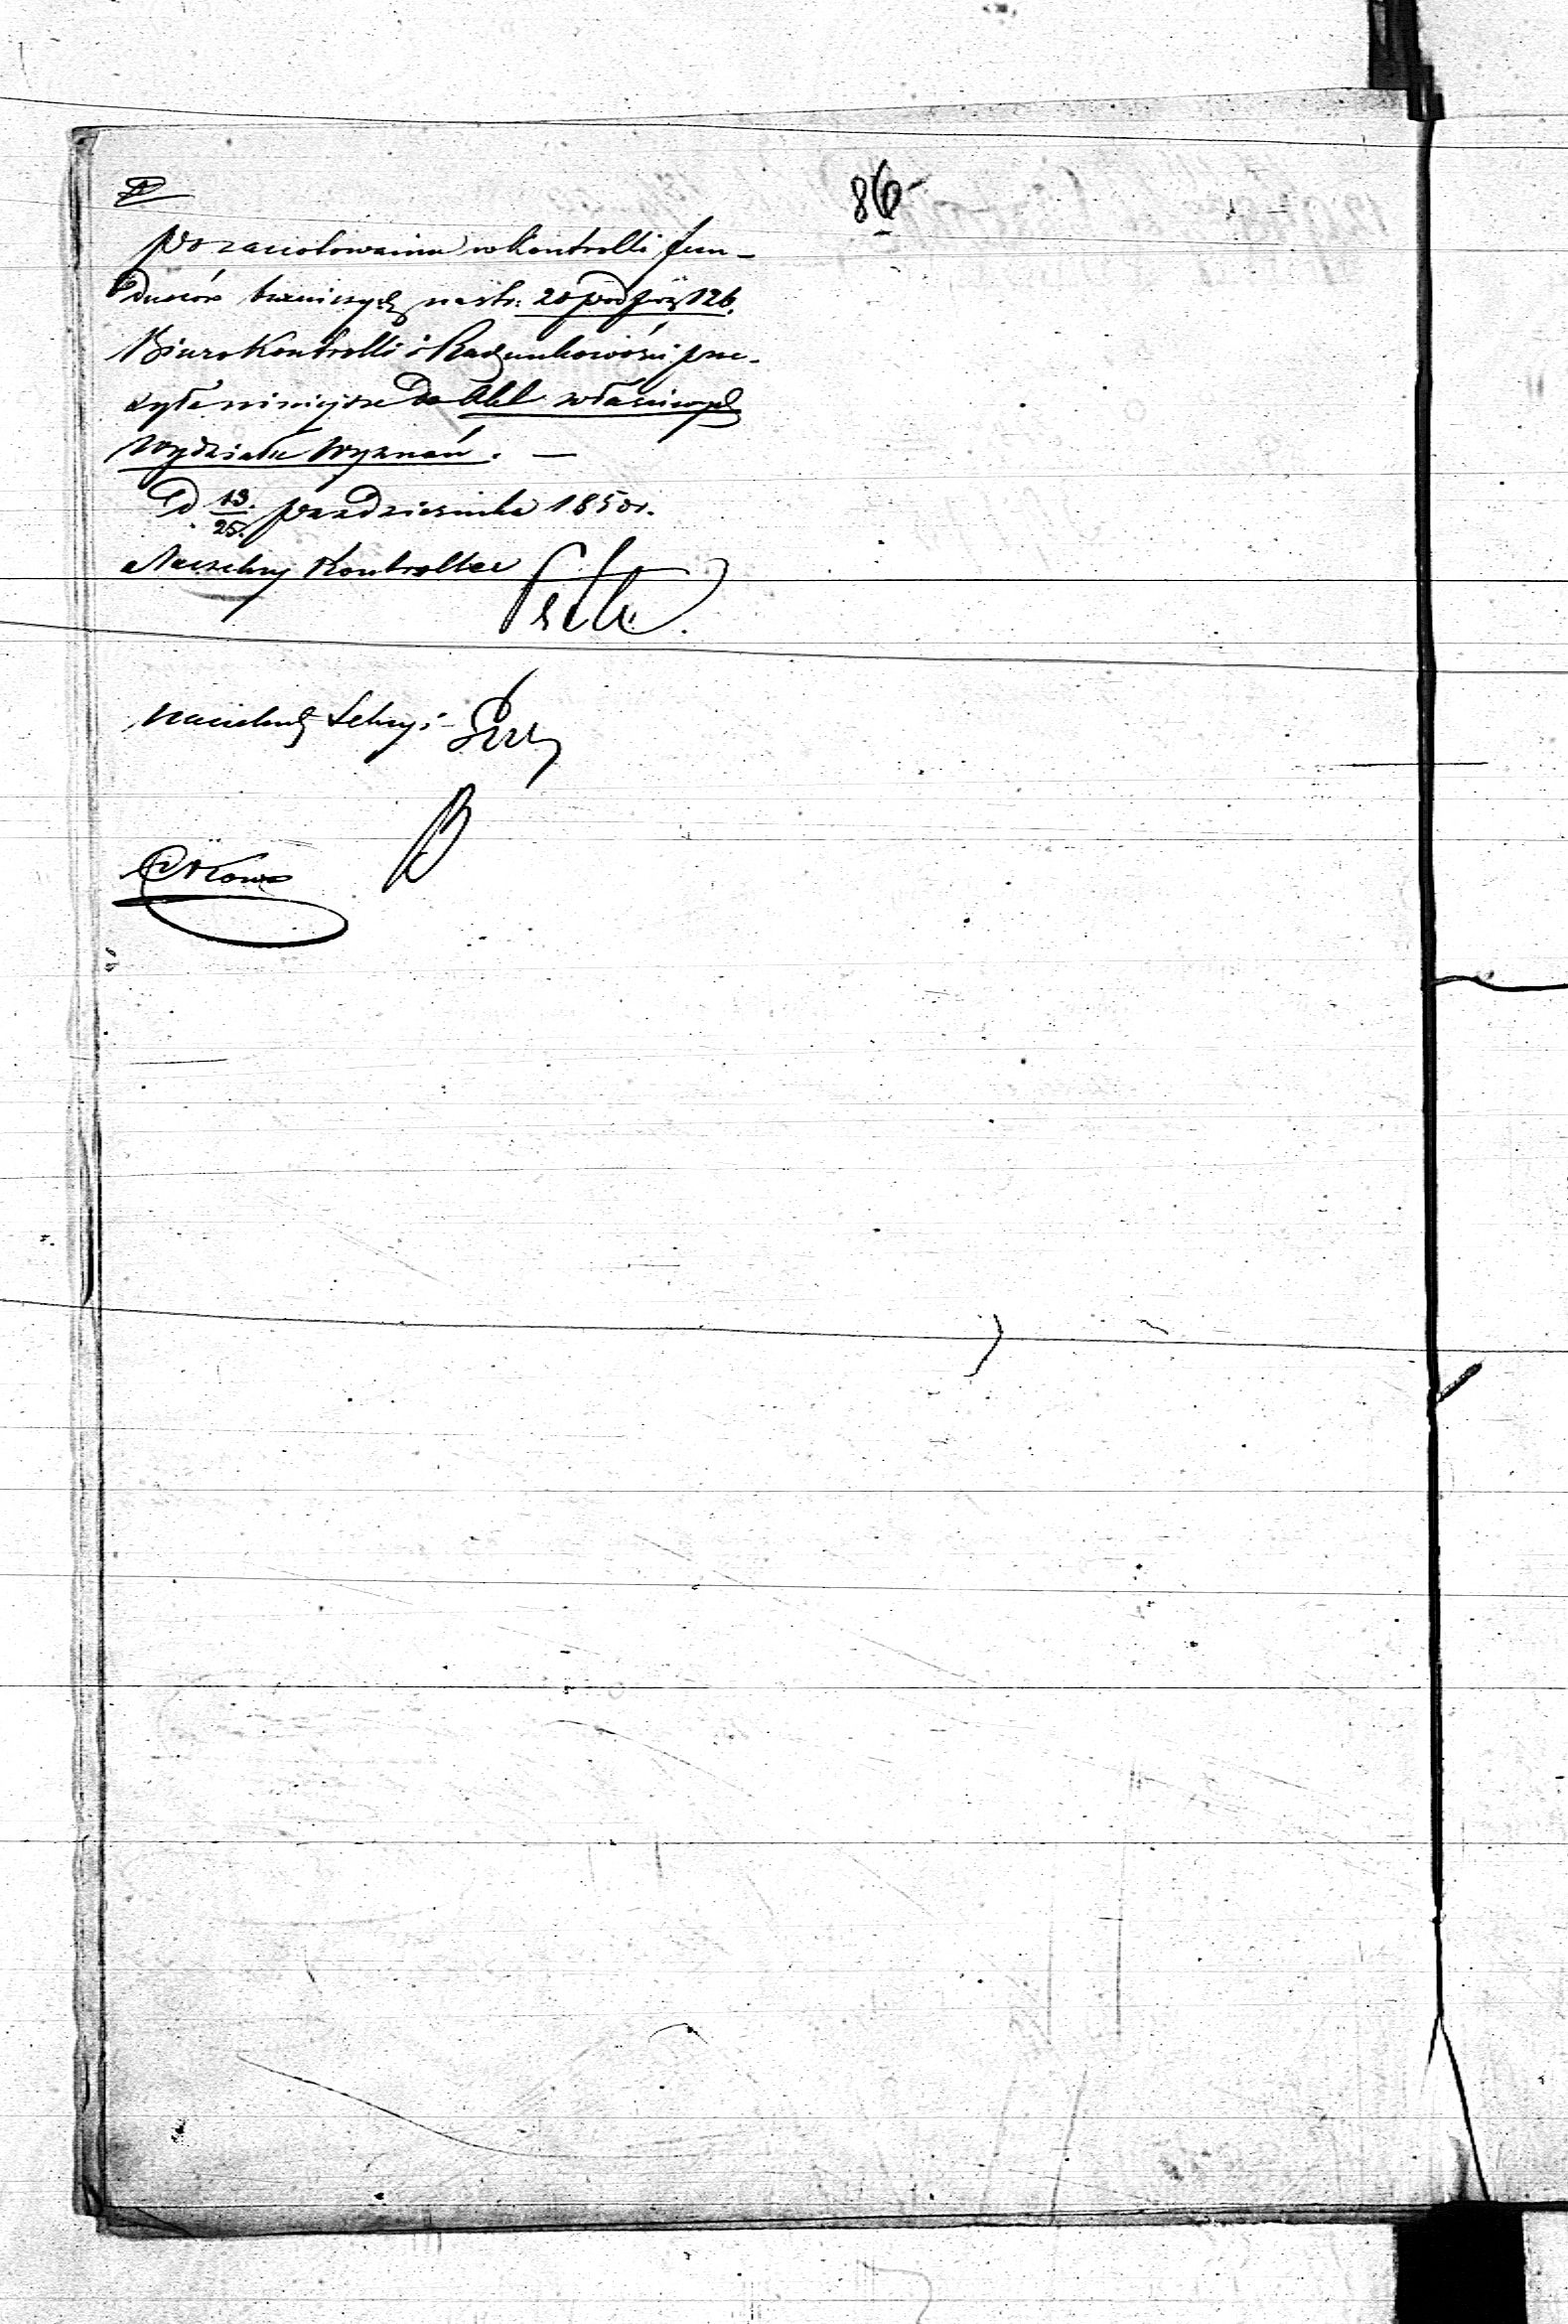 86
Po zanotowaniu w Kontrolli fun-
duszów bożniczych na str. 20 pod poz. 126.
Biuro Kontrolli i Rachunkowości prze-
syła niniejsze do Akt właściwych
Wydziału Wyznań. —
d 13/25 października 1850 r.
Naczelny Kontroller
Naczelnik Sekcyi